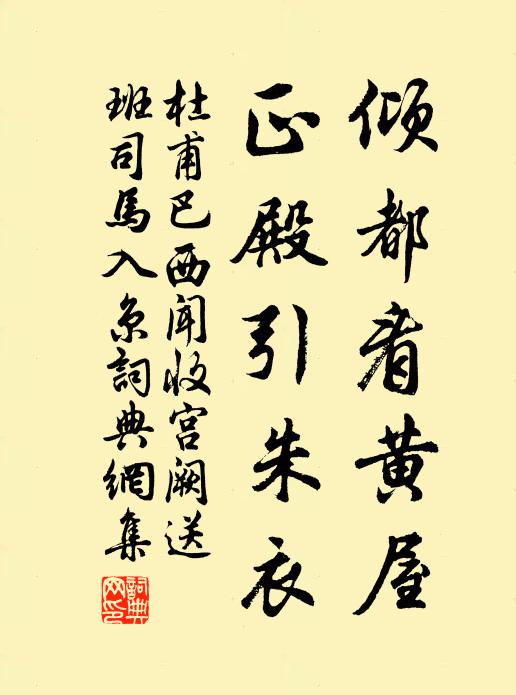 倾都看黄屋
正殿引朱衣
杜甫巴西闻收宫阙送
班司马入京詞典網集
詞典
网印